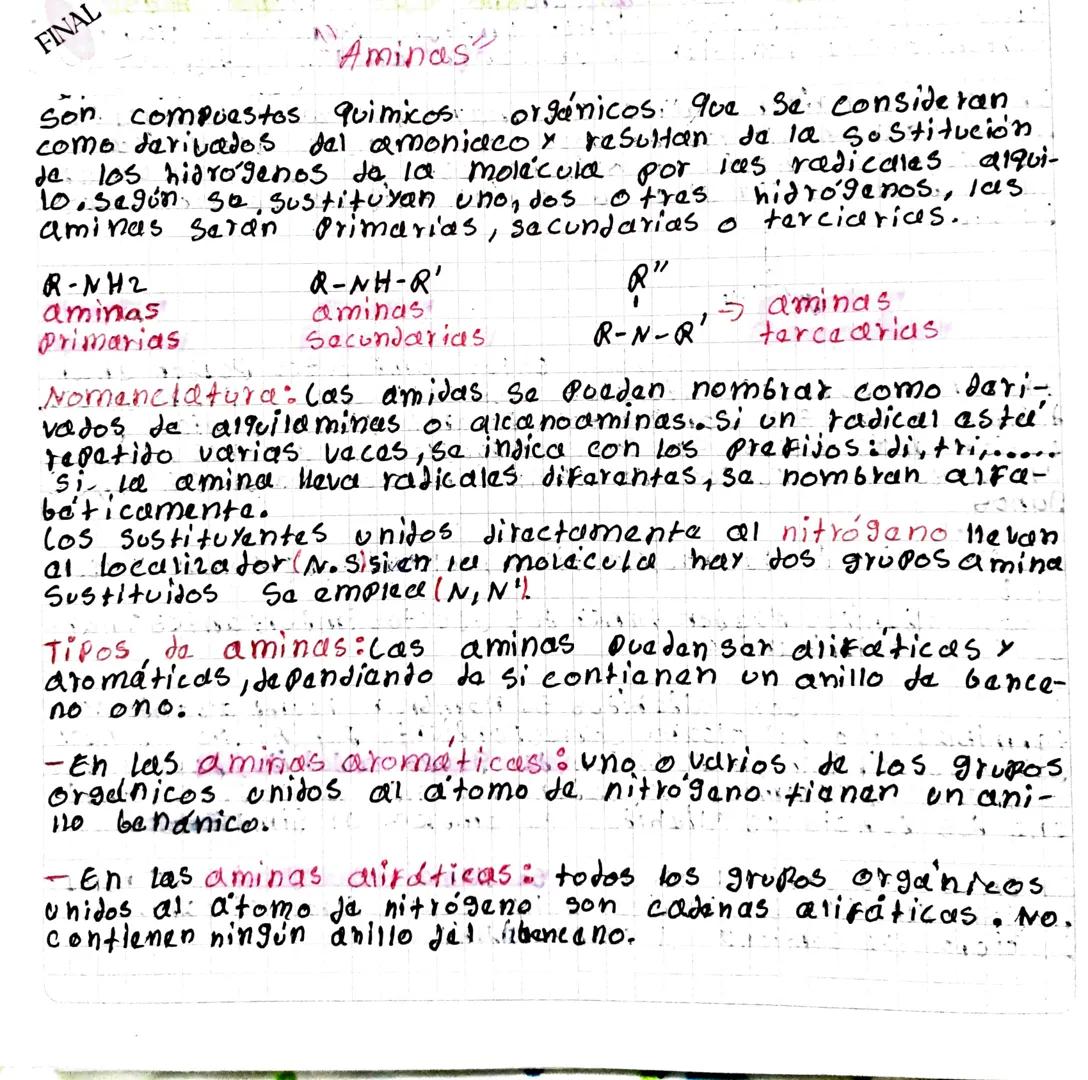 FINAL
"Aminas"
Son compuestos quimicos orgánicos que se consideran
como derivados del amoniaco y resultan de la sustitución
de los hidrógenos de la molécula por las radicales alqui-
lo. según se sustituyan uno, dos o tres hidrógenos, las
aminas serán primarias, secundarias o terciarias.
R-NH2 R-NH-R' R''
aminas aminas
primarias secundarias R-N-R' → aminas
tercearias
Nomenclatura: Las amidas se pueden nombrar como deri-
vados de alquilaminas o alcanoaminas. Si un radical está
repetido varias veces, se indica con los prefijos: di, tri,......
Si la amina lleva radicales diferentes, se nombran alfa-
béticamente.
Los sustituyentes unidos directamente al nitrógeno llevan
al localizador (N. S) si en la molécula hay dos grupos amina
sustituidos se emplea (N, N').
Tipos de aminas: Las aminas pueden ser alifáticas y
aromáticas, dependiendo de si contienen un anillo de bence-
no o no.
-En las aminas aromáticas: uno o varios de los grupos
orgánicos unidos al átomo de nitrógeno tienen un ani-
llo benénico.
-En las aminas alifáticas: todos los grupos orgánicos
unidos al átomo de nitrógeno son cadenas alifáticas. No.
contienen ningún anillo del benceno.